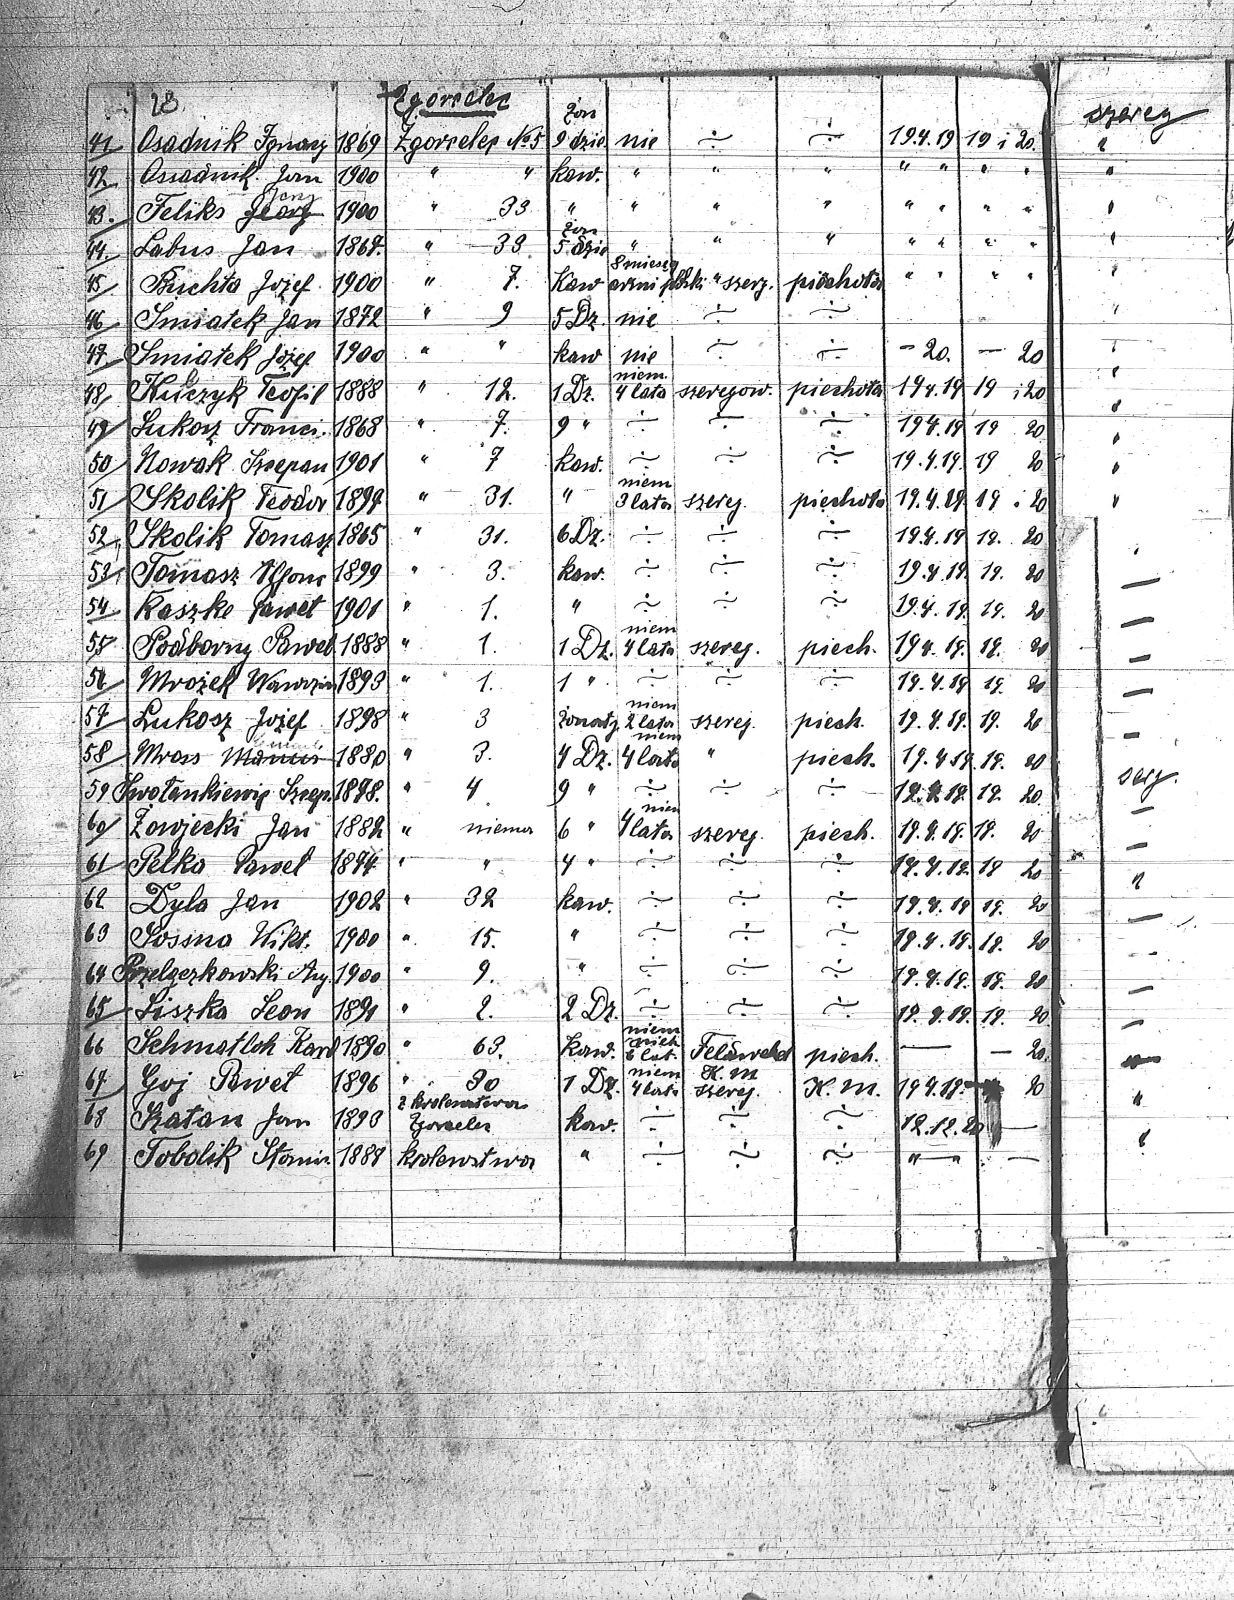 23 Zgorzelec szereg
41 Osadnik Ignacy 1869 Zgorzelec No 5 żon 9 dzie. nie ÷ ÷ 19.4.19 19 i 20. "
42 Osadnik Jan 1900 " " kaw. " " " " " " " "
43. Feliks Jerzy 1900 " 33 " " " " " " " " "
44. Labus Jan 1867. " 33 żon 5 dzie " " " " " " " "
45 Buchta Józef 1900 " 7. Kaw 8 miesięcy " szerg. piechota " " " " "
46 Smiatek Jan 1872 " 9 5 Dz. nie ÷ ÷ "
47 Smiatek Józef 1900 " " kaw nie ÷ ÷ – 20. – 20 "
48 Kulczyk Teofil 1888 " 12. 1 Dz. niem. 4 lata szeregow. piechota 19 4. 19 19 i 20 "
49 Lukosz Franc. 1868 " 7. 9 " ÷ ÷ ÷ 19 4. 19 19 20 "
50 Nowak Szczepan 1901 " 7 kaw. ÷ ÷ ÷ 19.4.19. 19 20 "
51 Skolik Teodor " 31. " niem 3 lata szereg. piechota 19.4.19 19 i 20 "
52 Skolik Tomasz 1865 " 31. 6 Dz. ÷ ÷ ÷ 19.4.19 19. 20
53 Tomasz 1899 " 3. kaw. ÷ ÷ ÷ 19.4.19. 19. 20 —
54 Kaszke Paweł 1901 " 1. " ÷ ÷ ÷ 19.4.19. 19. 20 —
55 Podborny Paweł 1888 " 1. 1 Dz. niem 4 lata szereg. piech. 19 4. 19. 19. 20 —
56 Mrozek Wawrzin 1893 " 1. 1 " ÷ ÷ ÷ 19.4.19 19. 20 —
57 Lukosz Józef 1898 " 3 żonaty niem 2 lata szereg. piech. 19.4.19. 19. 20 –
58 Mross 1880 " 3. 4 Dz. niem 4 lata " piech. 19.4.19. 19. 20 serg.
59 Szczep. 1878. " 4 9 " ÷ ÷ ÷ 19.4.19. 19. 20. —
60 Zowjecki Jan 1882 " niema 6 " niem 4 lata szereg. piech. 19.4.19. 19. 20 —
61 Pelka Paweł 1874 " " 4 " ÷ ÷ ÷ 19.4.19. 19 20 "
62 Dyla Jan 1902 " 32 kaw. ÷ ÷ ÷ 19.4.19 19. 20 —
63 Sossna Wikt. 1900 " 15. " ÷ ÷ ÷ 19.4.19. 19. 20 –
64 1900 " 9. " ÷ ÷ ÷ 19.4.19. 19. 20 —
65 Siszka Leon 1891 " 2. 2 Dz. ÷ ÷ ÷ 19.4.19. 19. 20 —
66 Schmatloh Karol 1890 " 63. kaw. niem 6 lat. Feldwebel piech. — – 20.
67 Goj Paweł 1896 " 30 1 Dz. niem 4 lata K. M szereg. K. M. 19 4.19. 20 "
68 Szatan Jan 1893 z krolewstwa Zgorzelec kaw. ÷ ÷ ÷ 12.12.20 — "
69 Tobolik Stanis. 1887 krolewstwa " ÷ ÷ ÷ " — —